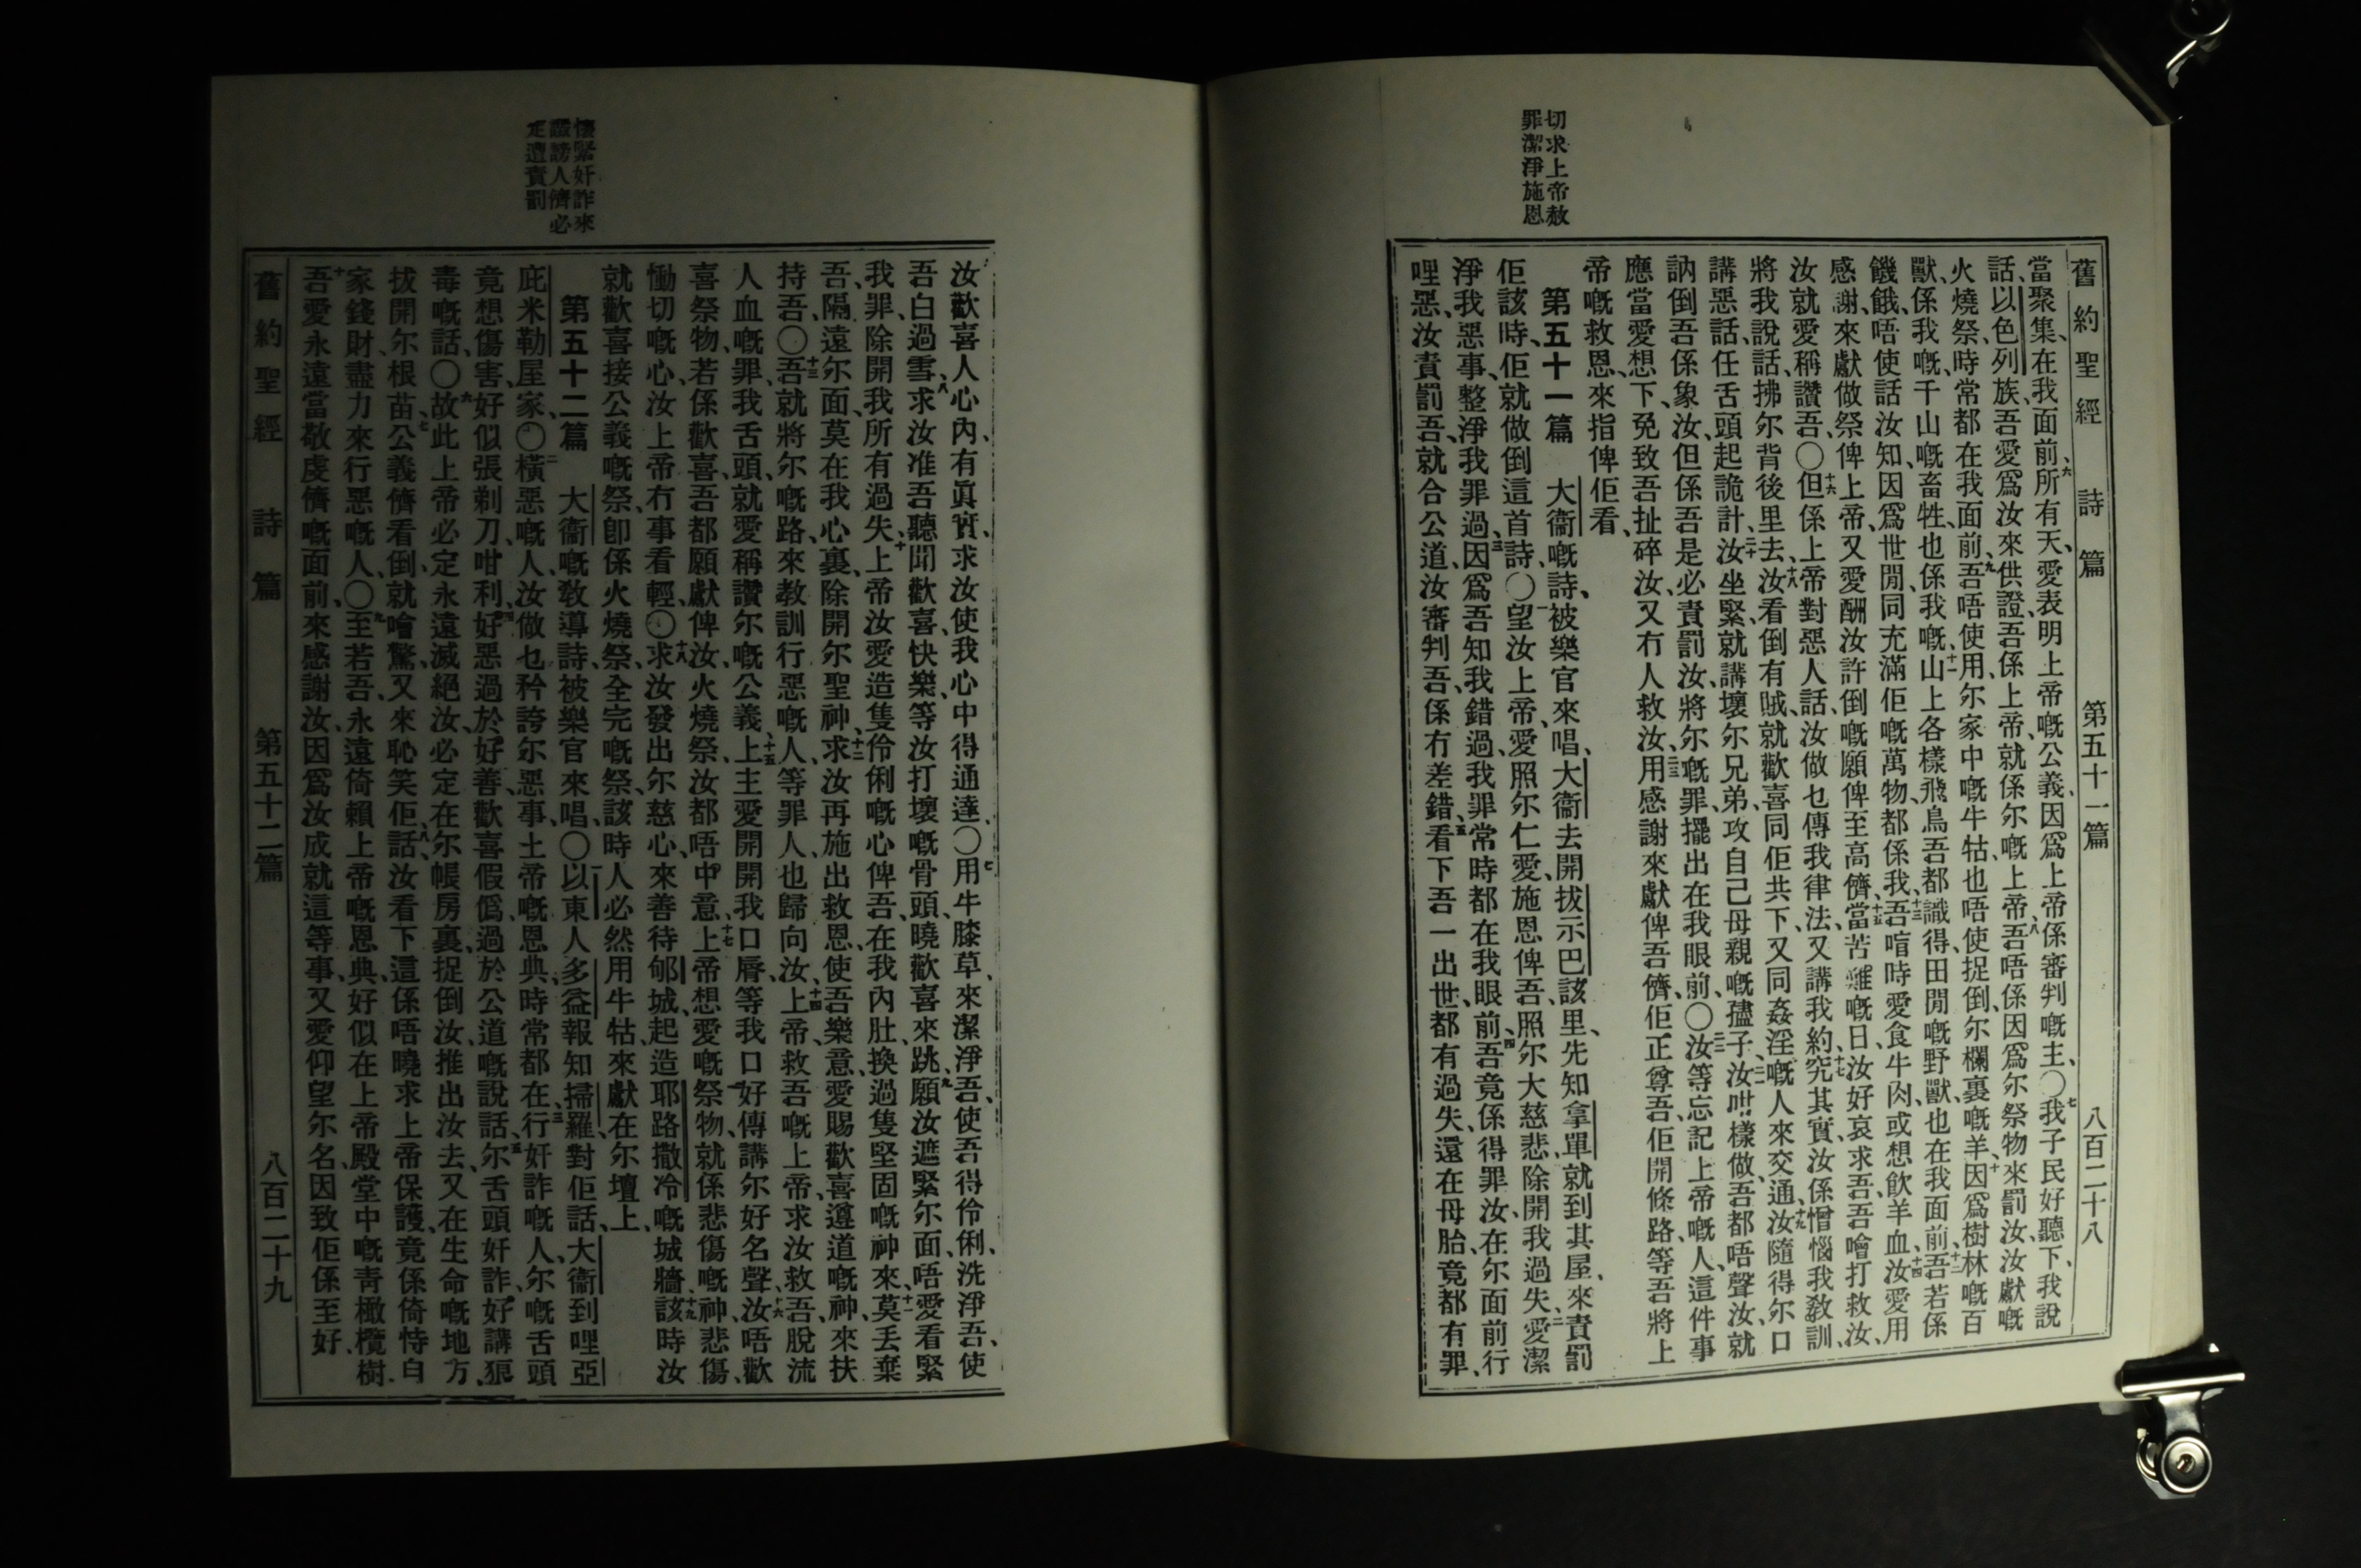 舊約聖經　詩篇　第五十一篇　八百二十八
當聚集、在我面前、六所有天、愛表明上帝嘅公義、因爲上帝係審判嘅主、〇七我子民好聽下、我說
話、以色列族、吾愛爲汝來供證、吾係上帝、就係尔嘅上帝、八吾唔係因爲尔祭物來罰汝、汝獻嘅
火燒祭、時常都在我面前、九吾唔使用尔家中嘅牛牯、也唔使捉倒尔欄裏嘅羊、十因爲樹林嘅百
獸、係我嘅、千山嘅畜牲、也係我嘅、十一山上各樣飛鳥、吾都識得、田閒嘅野獸、也在我面前、十二吾若係
饑餓、唔使話汝知、因爲世閒同充滿佢嘅萬物、都係我、十三吾喑時愛食牛肉、或想飲羊血、十四汝愛用
感謝、來獻做祭俾上帝、又愛酬汝許倒嘅願俾至高儕、十五當苦難嘅日、汝好哀求吾、吾噲打救汝、
汝就愛稱讚吾、〇十六但係上帝對惡人話、汝做乜傳我律法、又講我約、十七究其實、汝係憎惱我教訓、
將我說話、拂尔背後里去、十八汝看倒有賊、就歡喜同佢共下、又同姦淫嘅人來交通、十九汝隨得尔口
講惡話、任舌頭起詭計、二十汝坐緊就講壞尔兄弟、攻自己母親嘅孻子、二一汝咁樣做、吾都唔聲、汝就
訥倒吾係象汝、但係吾是必責罰汝、將尔嘅罪、擺出在我眼前、〇二二汝等忘記上帝嘅人、這件事
應當愛想下、免致吾扯碎汝、又冇人救汝、二三用感謝來獻俾吾儕、佢正尊吾、佢開條路等吾將上
帝嘅救恩、來指俾佢看、
第五十一篇　大衞嘅詩、被樂官來唱、大衞去開拔示巴該里、先知拿單就到其屋、來責罰
佢該時、佢就做倒這首詩、〇一望汝上帝、愛照尔仁愛、施恩俾吾、照尔大慈悲、除開我過失、二愛潔
淨我惡事、整淨我罪過、三因爲吾知我錯過、我罪常時都在我眼前、四吾竟係得罪汝、在尔面前行
哩惡、汝責罰吾、就合公道、汝審判吾、係冇差錯、五看下吾一出世、都有過失、還在母胎、竟都有罪、
切求上帝赦
罪潔淨施恩
汝歡喜人心內有眞實、求汝使我心中得通達、〇七用牛膝草、來潔淨吾、使吾得伶俐、洗淨吾、使
吾白過雪、八求汝准吾聽聞歡喜快樂、等汝打壞嘅骨頭、曉歡喜來跳、九願汝遮緊尔面、唔愛看緊
我罪、除開我所有過失、十上帝汝愛造隻伶俐嘅心俾吾、在我內肚換過隻堅固嘅神來、十一莫丟棄
吾、隔遠尔面、莫在我心裏、除開尔聖神、十二求汝再施出救恩、使吾樂意、愛賜歡喜遵道嘅神、來扶
持吾、〇十三吾就將尔嘅路、來教訓行惡嘅人、等罪人也歸向汝、十四上帝、救吾嘅上帝、求汝救吾、脫流
人血嘅罪、我舌頭、就愛稱讚尔嘅公義、十五上主愛開開我口脣、等我口好傳講尔好名聲、十六汝唔歡
喜祭物、若係歡喜、吾都願獻俾汝、火燒祭、汝都唔中意、十七上帝想愛嘅祭物、就係悲傷嘅神、悲傷、
慟切嘅心、汝上帝冇事看輕、〇十八求汝發出尔慈心、來善待郇城、起造耶路撒冷嘅城牆、十九該時汝
就歡喜接公義嘅祭、卽係火燒祭、全完嘅祭、該時人必然用牛牯、來獻在尔壇上、
第五十二篇　大衞嘅敎導詩、被樂官來唱、〇一以東人多益報知掃羅、對佢話、大衞到哩亞
庇米勒屋家、〇二橫惡嘅人、汝做乜矜誇尔惡事、上帝嘅恩典、時常都在、三行奸詐嘅人、尔嘅舌頭
竟想傷害、好似張剃刀咁利、四好惡過於好善、歡喜假僞、過於公道嘅說話、五尔舌頭奸詐、好講狠
毒嘅話、〇六故此上帝必定永遠滅絕汝、必定在尔帳房裏、捉倒汝、推出汝去、又在生命嘅地方、
拔開尔根苗、七公義儕看倒、就噲驚、又來恥笑佢、話、八汝看下這係唔曉求上帝保護、竟係倚恃自
家錢財、盡力來行惡嘅人、〇九至若吾、永遠倚賴上帝嘅恩典、好似在上帝殿堂中嘅靑橄欖樹、
十吾愛永遠當敬虔儕嘅面前、來感謝汝、因爲汝成就這等事、又愛仰望尔名、因致佢係至好、
舊約聖經　詩篇　第五十二篇　八百二十九
懷緊奸詐來
讒謗人儕必
定遭責罰